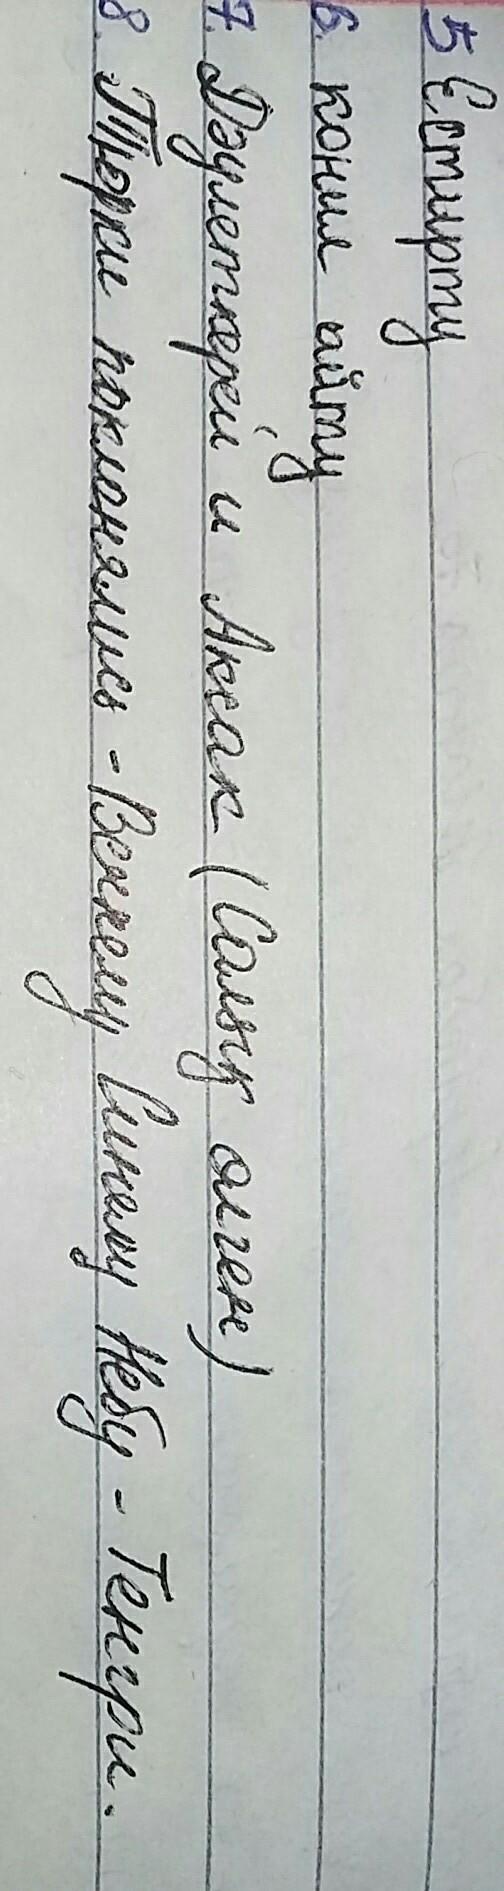 5 Естирту
6. конил айту
7. Дәулеткерей и Аксак (Салық өлген)
8. Тюрки поклонялись - Вечному Синему Небу - Тенгри.